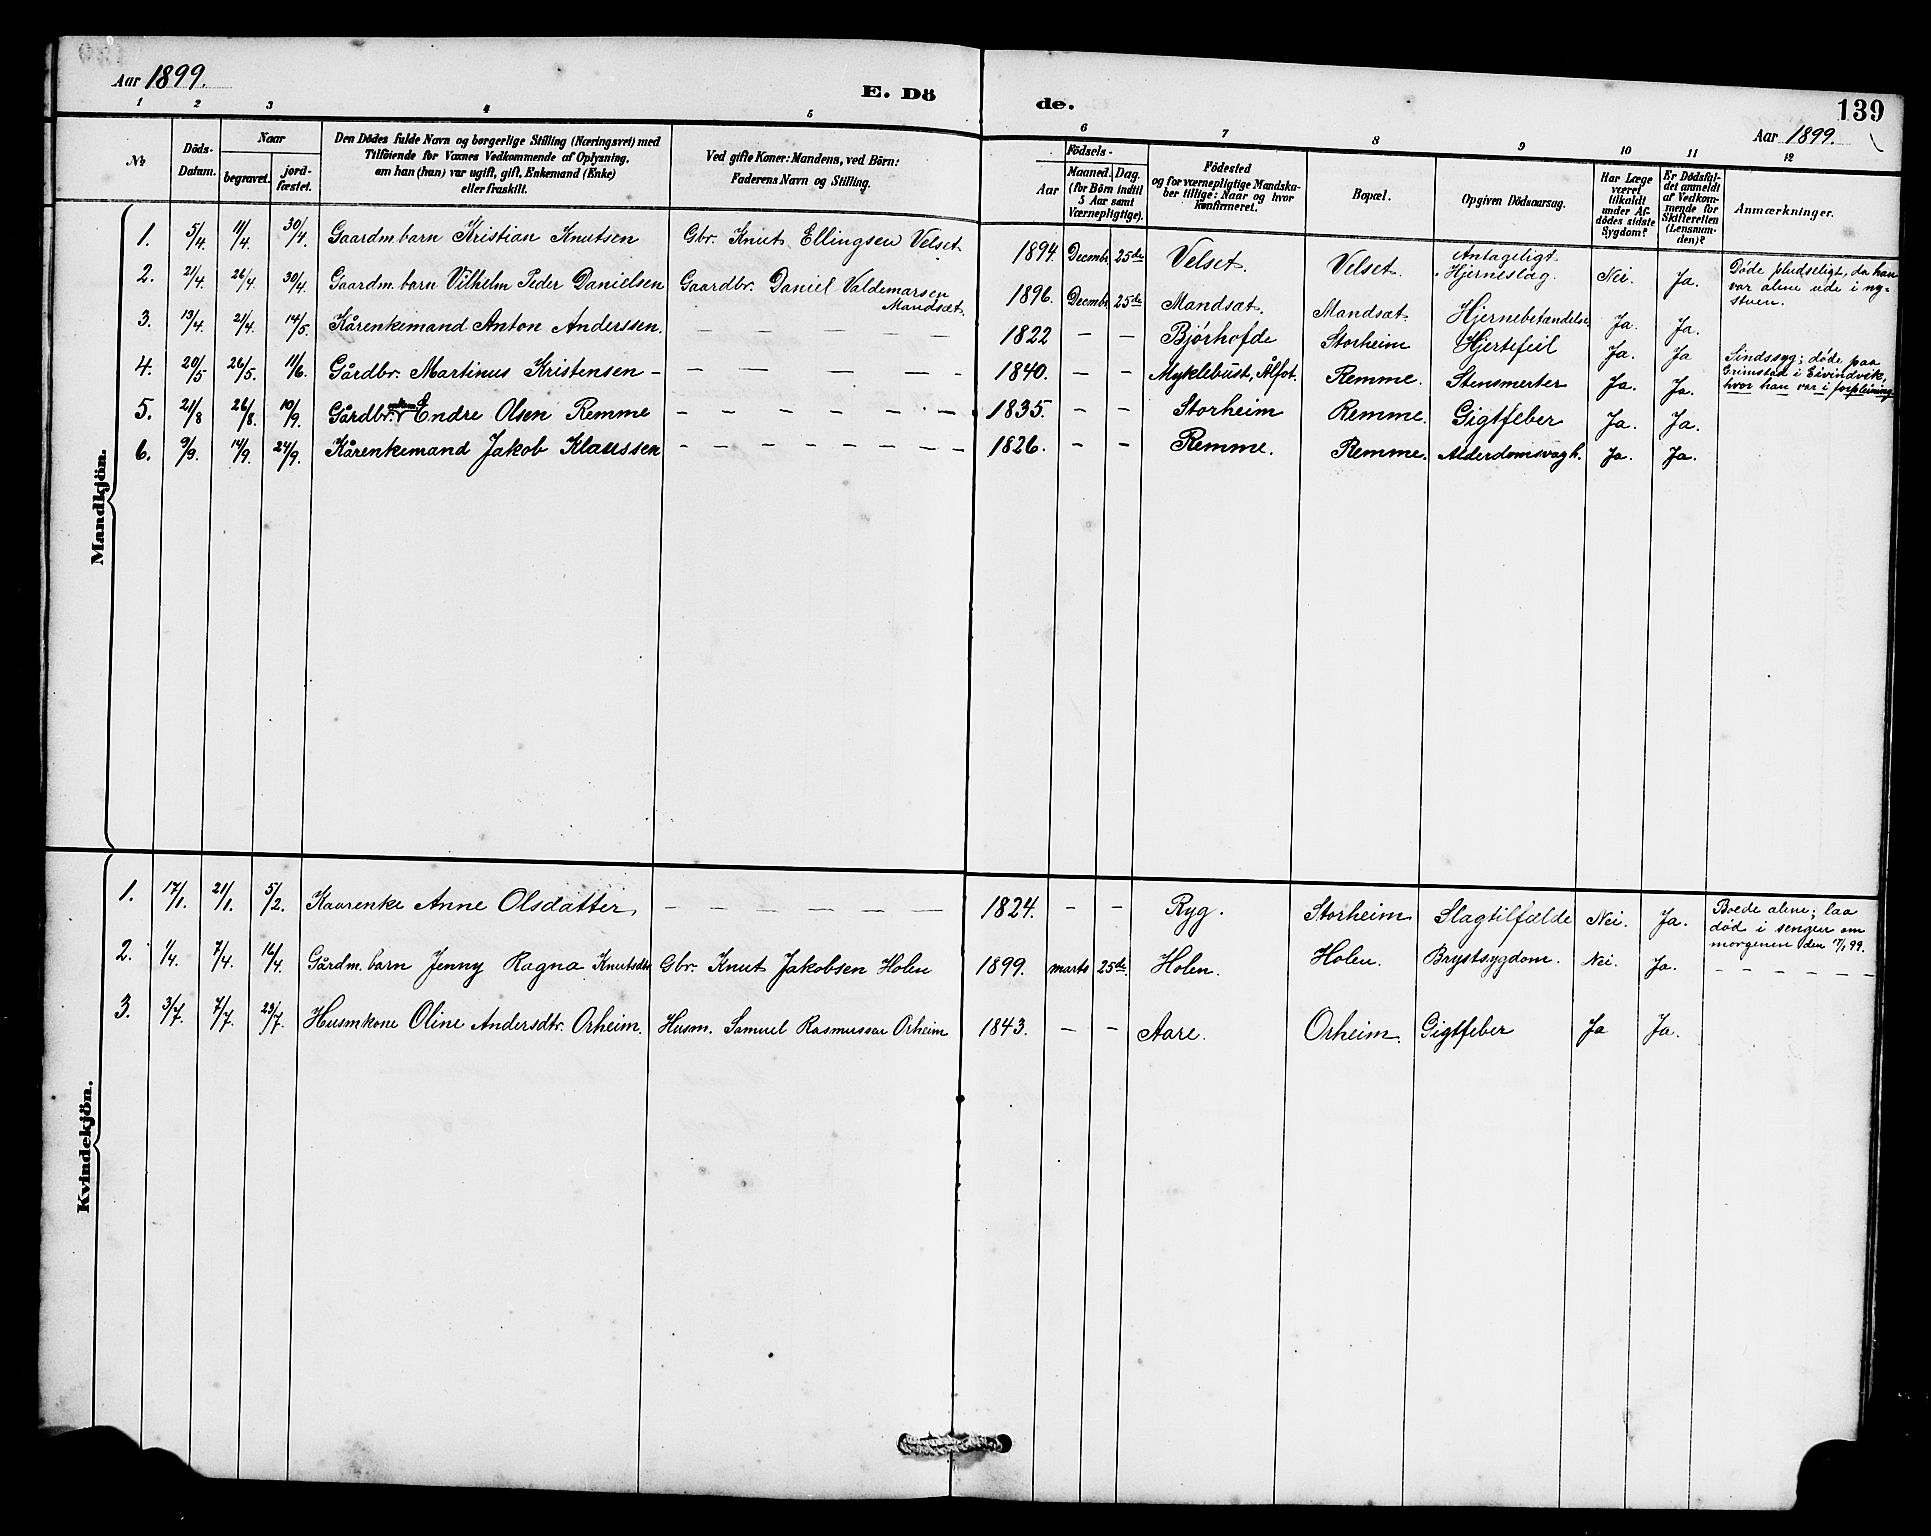 Aar 1899.
E. Dö
de.
139
Aar 1899.
1 2 3 4 5 6 7 8 9 10 11 12
No
Döds-
Datum.
Naar
begravet.
jord-
fæstet.
Den Dödes fulde Navn og borgerlige Stilling (Næringsvei) med
Tilföiende for Voxnes Vedkommende af Oplysning,
om han (hun) var ugift, gift, Enkemand (Enke)
eller fraskilt.
Ved gifte Koner: Mandens, ved Börn:
Faderens Navn og Stilling.
Födsels-
Aar
Maaned. Dag.
(for Börn indtil
5 Aar samt
Værnepligtige).
Födested
og for værnepligtige Mandska-
ber tillige: Naar og hvor
konfirmeret.
Bopæl.
Opgiven Dödsaarsag.
Har Læge
været
tilkaldt
under Af-
dödes sidste
Sygdom?
Er Dödsfal-
det anmeldt
af Vedkom-
mende for
Skifteretten
(Lensman-
den)?
Anmærkninger.
Mandkjön.
1. 5/4. 11/4. 30/4. Gaardm barn Kristian Knutsen Gbr. Knut Ellingsen Velset. 1894 Decmbr 25de Velset. Velset. Antageligt Hjerneslag. Nei. Ja. Døde pludseligt, da han
var alene ude i ny-
stuen.
2. 21/4. 26/4. 30/4. Gaardm. barn Vilhelm Peder Danielsen Gaardbr. Daniel Valdemarsen Mandsæt. 1896. Decmbr 25de Mandsæt. Mandsæt. Hjernebetændelse Ja. Ja.
3. 13/4. 21/4. 14/5. Kårenkemand Anton Anderssen. — — — — — 1822 — — Bjørhofde Storheim Hjertefeil Ja. Ja
4. 20/5 26/5. 11/6. Gårdbr. Martinus Kristensen — — — — — — 1840. — — Myklebust, Ålfot. Remme. Stensmerter Ja. Ja. Sindssyg; døde paa
Grimstad i Eivindvik,
hvor han var i forpleining
5. 21/8 26/8. 10/9. Gårdbr. Endre Olsen Remme — — — — — — — 1835. — — Storheim Remme. Gigtfeber Ja. Ja.
6. 9/9. 14/9. 24/9. Kårenkemand Jakob Klaussen — — — — — — — — 1826. — — Remme. Remme. Alderdomsvagh. Ja. Ja.
Kvindekjön.
1. 17/1. 21/1. 5/2. Kaarenke Anne Olsdatter, — — — — — — 1824. — — Ryg. Storheim Slagtilfælde Nei. Ja. Boede alene; laa
død i sengen om
morgenen den 17/1 99.
2. 1/4. 7/4. 16/4. Gårdm. barn Jenny Ragna Knutsdtr Gbr. Knut Jakobsen Holen 1899. marts 25de. Holen. Holen. Brystsygdom. Nei. Ja. — — — — — —
3. 3/7. 7/7. 23/7. Husmkone Oline Andersdtr. Orheim. Husm. Samuel Rasmussen Orheim 1843. — — Aare. Orheim. Gigtfeber Ja Ja.